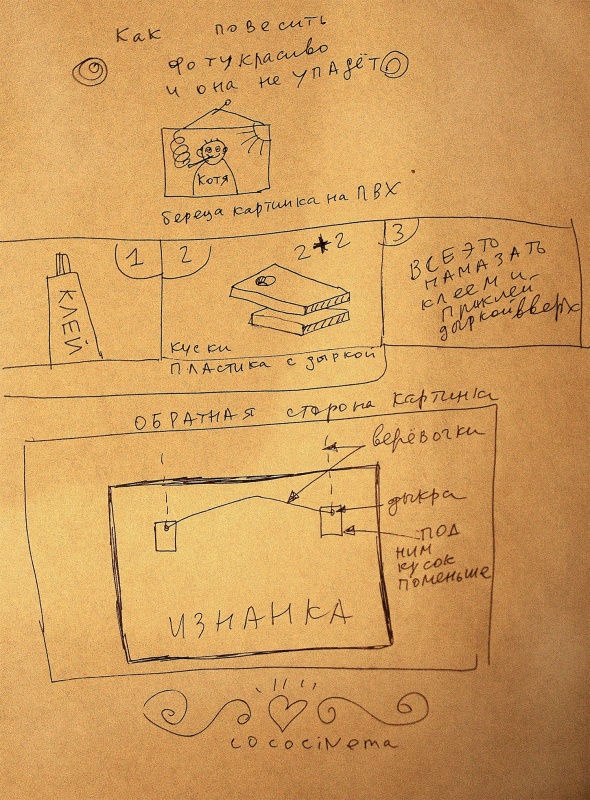 Как повесить
фоту красиво
и она не упадёт
Котя
береца картинка на ПВХ
1
КЛЕЙ
2
2+2
куски
пластика с дыркой
3
ВСЕ ЭТО
НАМАЗАТЬ
клеем и
приклеи
дыркой вверх
ОБРАТНАЯ сторона картинки
верёвочки
дыкра
под
ним
кусок
поменьше
ИЗНАНКА
cococinema